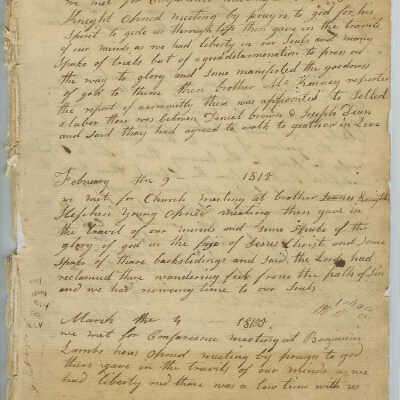 we met for Conference
Knight opened meeting by prayer to god for his
Spirit to gide us through life then gave in the travels
of our minds as we had liberty in our Souls and many
Spake of trials but of a good determenation to press on
the way to glory and Some manifested the goodness
of god to them then brother Mc Kenney reported
the report of a committy there was appointed to Settel
a labor there was between Daniel brown & Joseph Dean
and Said thay had agreed to walk to geather in Love
February the 9 1815
we met for Church meeting at brother Knights
Stephen young opned meeting then gave in
the travil of our minds and Some Spake of the
glory of god in the face of Jesus Christ and Some
Spake of thare backslidings and Said the Lord had
reclamed thare wandering feet from the path of Sin
and we had reviveing time to our Souls
March the 4
we met for Conference meeting at Benjamin
Lambs house opned meeting by prayer to god
then gave in the travils of our minds as we
had liberty and there was a low time with us